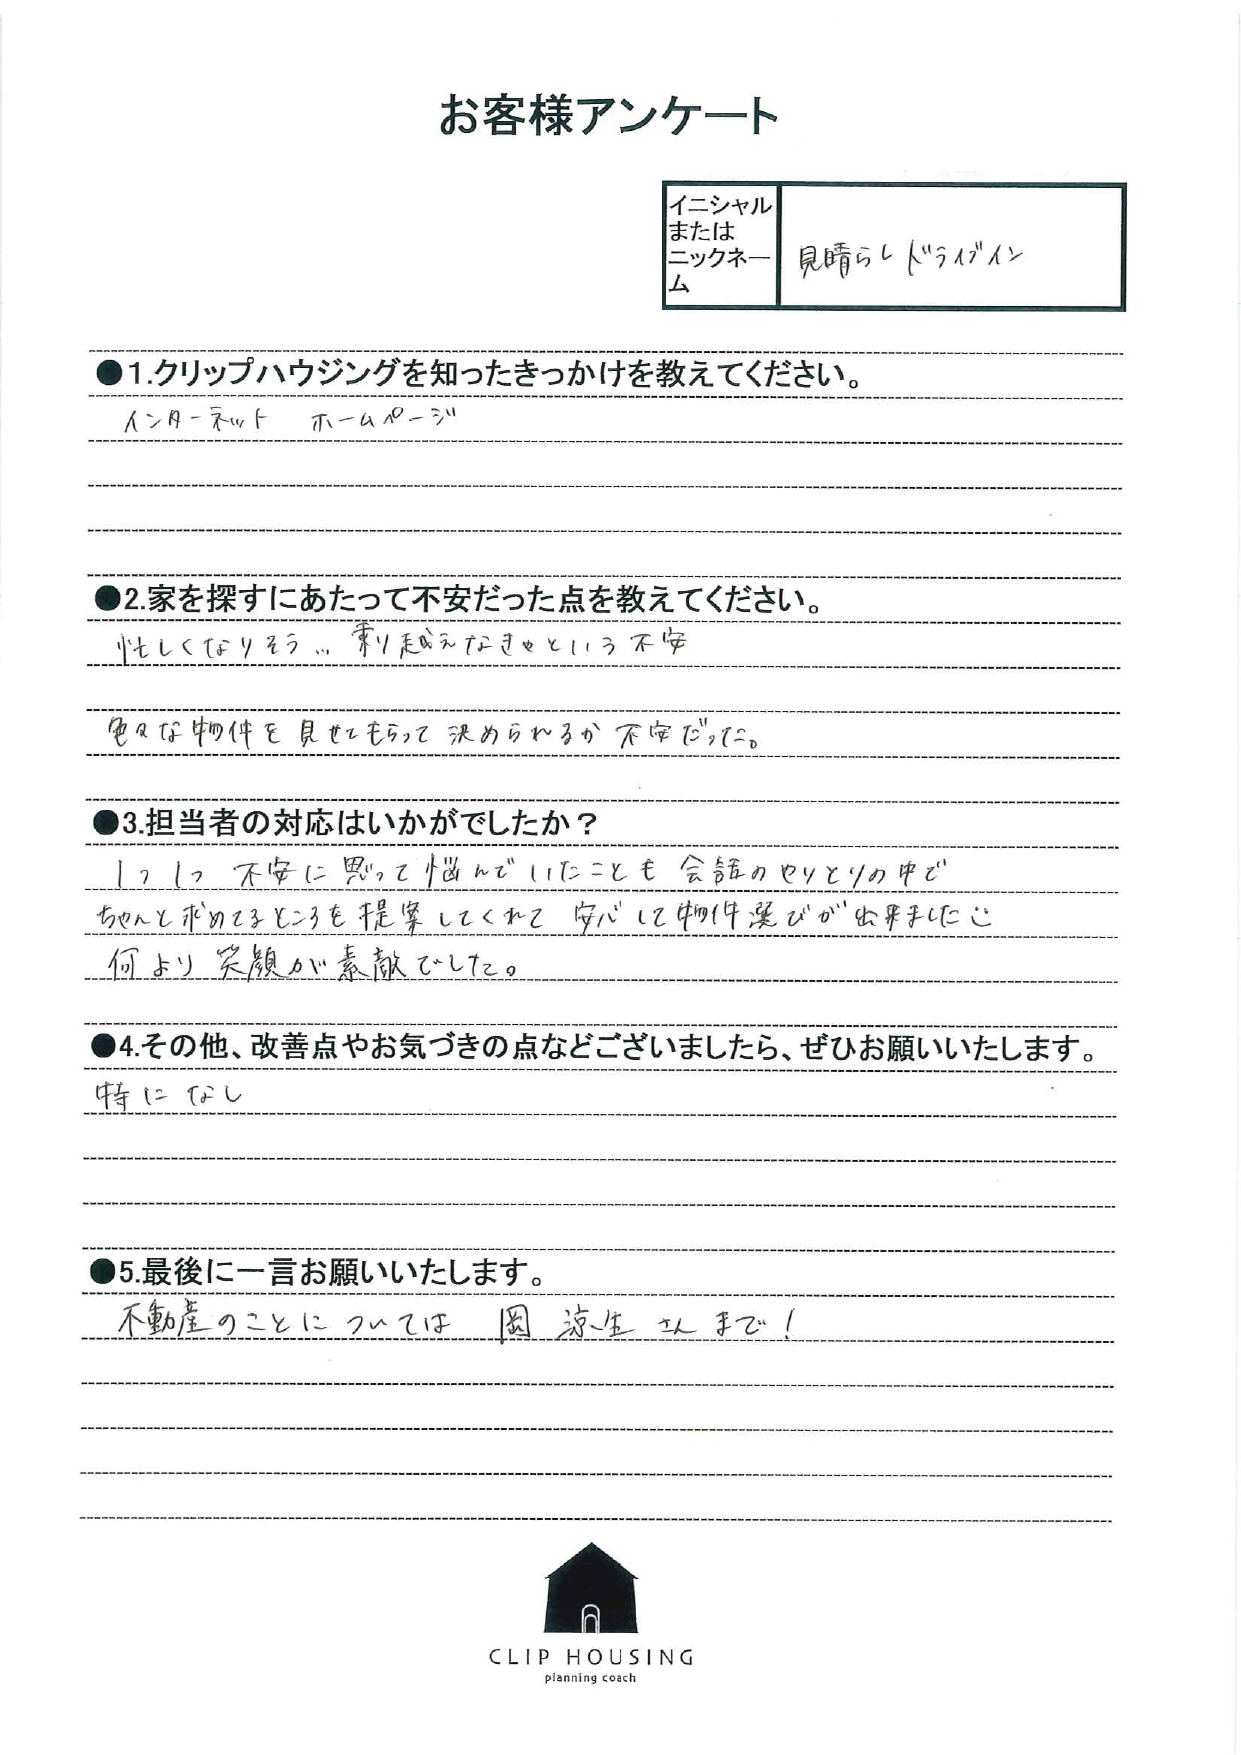 お客様アンケート
イニシャル
または
ニックネー
ム
見晴らしドライブイン
●1.クリップハウジングを知ったきっかけを教えてください。
インターネット ホームページ
●2.家を探すにあたって不安だった点を教えてください。
忙しくなりそう… 乗り越えなきゃという不安
色々な物件を見せてもらって決められるか不安だった。
●3.担当者の対応はいかがでしたか？
1つ1つ 不安に思って悩んでいたことも 会話のやりとりの中で
ちゃんと求めてるところを提案してくれて 安心して物件選びが出来ました
何より 笑顔が素敵でした。
●4.その他、改善点やお気づきの点などございましたら、ぜひお願いいたします。
特になし
●5.最後に一言お願いいたします。
不動産のことについては 岡 涼生 さんまで！
CLIP HOUSING
planning coach